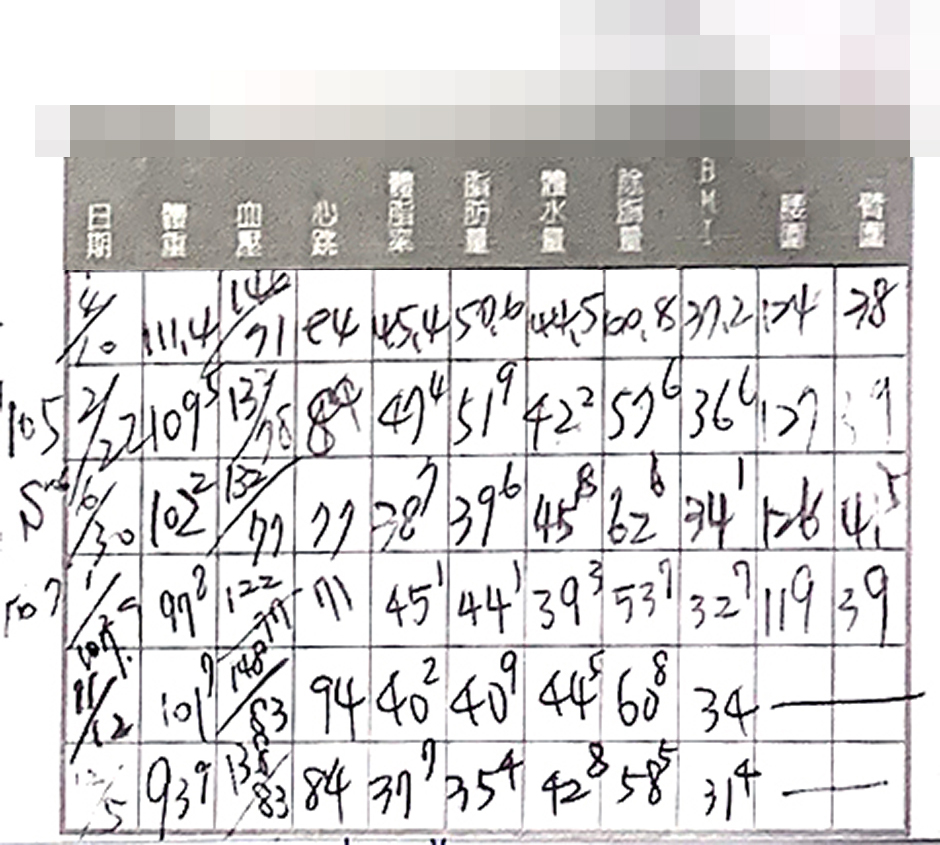 日期 體重 血壓 心跳 體脂率 脂肪量 體水量 除脂量 BMI 腰圍 臂圍
4/10 111.4 146/71 84 45.4 50.6 44.5 60.8 37.2 124 38
105 2/22 109.5 137/78 84 47.4 51.9 42.2 57.6 36.6 127 39
6/30 102.2 132/77 77 38.7 39.6 45.8 62.6 34.1 126 41.5
107 97.8 122/77 71 45.1 44.1 39.3 53.7 32.7 119 39
11/12 101.7 148/83 94 40.2 40.9 44.5 60.8 34 —
93.9 138/83 84 37.7 35.4 42.8 58.5 31.4 —